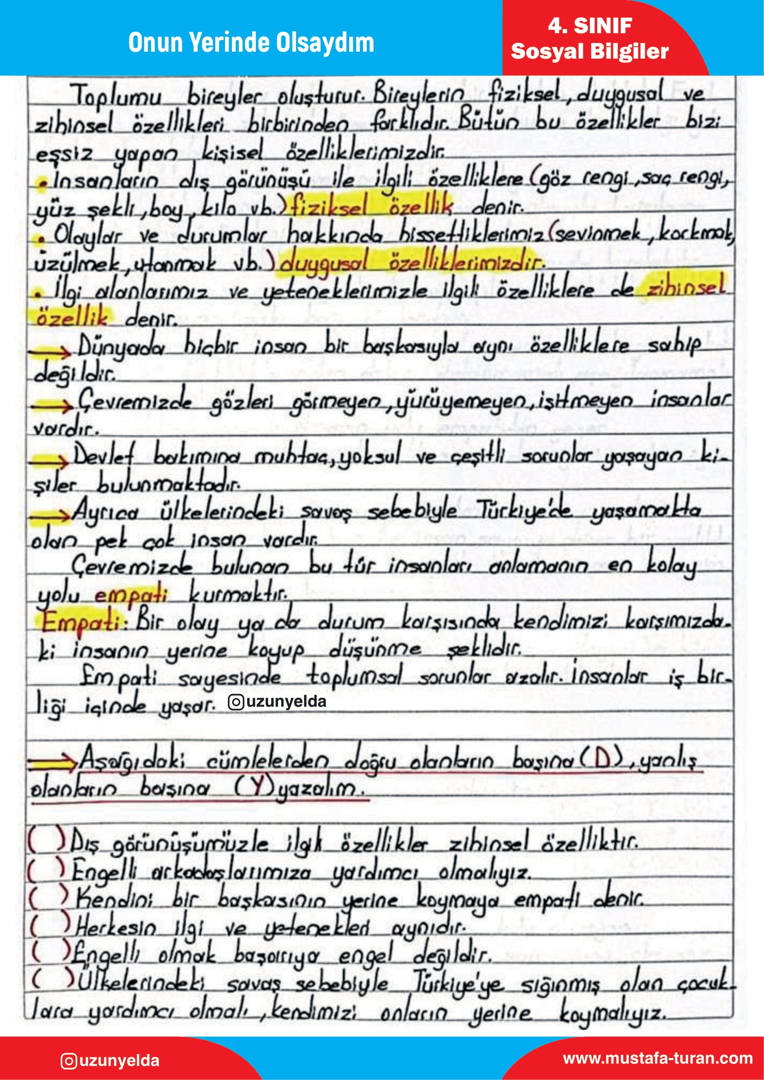 Onun Yerinde Olsaydım
4. SINIF
Sosyal Bilgiler
Toplumu bireyler oluşturur. Bireylerin fiziksel, duygusal ve
zihinsel özellikleri birbirinden farklıdır. Bütün bu özellikler bizi
eşsiz yapan kişisel özelliklerimizdir.
• İnsanların dış görünüşü ile ilgili özelliklere (göz rengi, saç rengi,
yüz şekli, boy, kilo vb.) fiziksel özellik denir.
• Olaylar ve durumlar hakkında hissettiklerimiz (sevinmek, korkmak,
üzülmek, utanmak vb.) duygusal özelliklerimizdir.
• İlgi alanlarımız ve yeteneklerimizle ilgili özelliklere de zihinsel
özellik denir.
→ Dünyada hiçbir insan bir başkasıyla aynı özelliklere sahip
değildir.
→ Çevremizde gözleri görmeyen, yürüyemeyen, işitmeyen insanlar
vardır.
→ Devlet bakımına muhtaç, yoksul ve çeşitli sorunlar yaşayan ki-
şiler bulunmaktadır.
→ Ayrıca ülkelerindeki savaş sebebiyle Türkiye'de yaşamakta
olan pek çok insan vardır.
Çevremizde bulunan bu tür insanları anlamanın en kolay
yolu empati kurmaktır.
Empati: Bir olay ya da durum karşısında kendimizi karşımızda-
ki insanın yerine koyup düşünme şeklidir.
Empati sayesinde toplumsal sorunlar azalır. İnsanlar iş bir-
liği içinde yaşar. uzunyelda
→ Aşağıdaki cümlelerden doğru olanların başına (D), yanlış
olanların başına (Y) yazalım.
( ) Dış görünüşümüzle ilgili özellikler zihinsel özelliktir.
( ) Engelli arkadaşlarımıza yardımcı olmalıyız.
( ) Kendini bir başkasının yerine koymaya empati denir.
( ) Herkesin ilgi ve yetenekleri aynıdır.
( ) Engelli olmak başarıya engel değildir.
( ) Ülkelerindeki savaş sebebiyle Türkiye'ye sığınmış olan çocuk-
lara yardımcı olmalı, kendimizi onların yerine koymalıyız.
uzunyelda
www.mustafa-turan.com